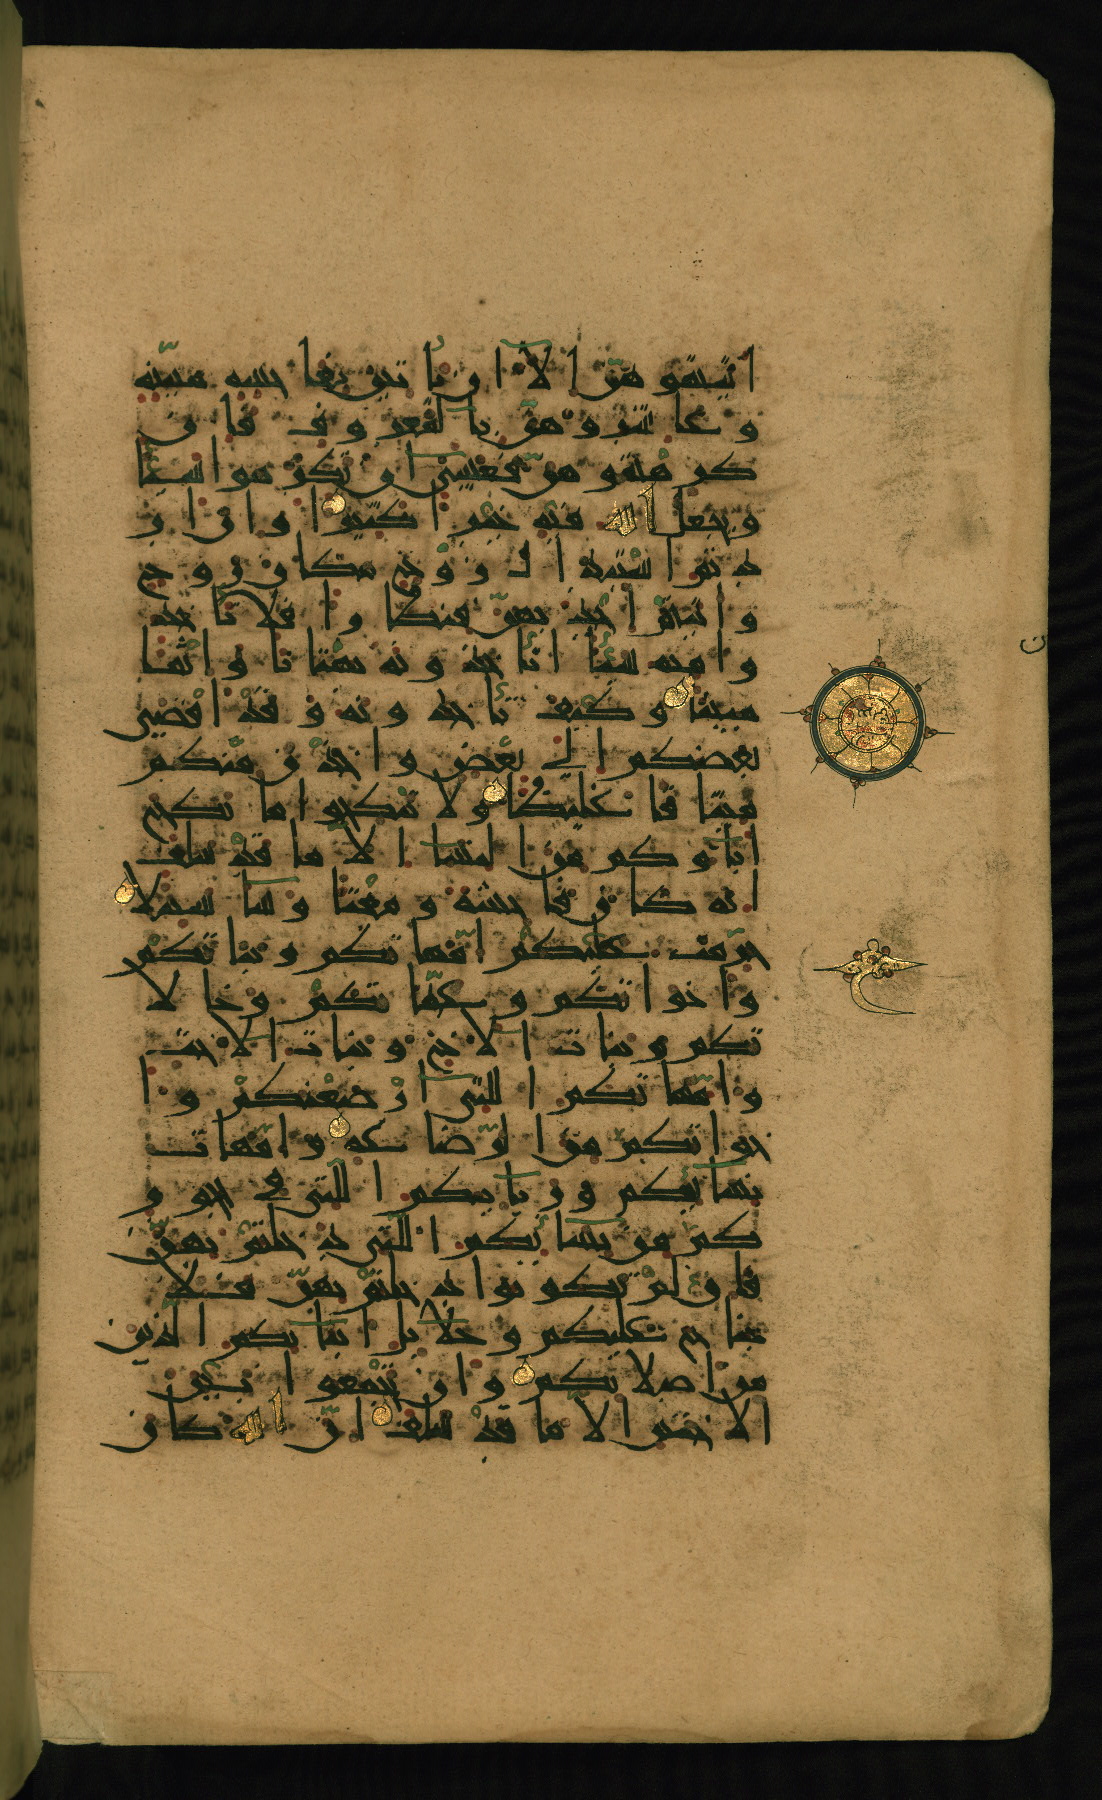 اتيتموهن الا ان ياتين بفاحشة مبينة
وعاشروهن بالمعروف فان
كرهتموهن فعسى ان تكرهوا شيئا
ويجعل الله فيه خيرا كثيرا وان ار
دتم استبدال زوج مكان زوج
واتيتم احديهن قنطارا فلا تاخذ
وا منه شيئا اتاخذونه بهتانا واثما
مبينا وكيف تاخذونه وقد افضى
بعضكم الى بعض واخذن منكم
ميثاقا غليظا ولا تنكحوا ما نكح
اباوكم من النسا الا ما قد سلف
انه كان فاحشة ومقتا وسا سبيلا
حرمت عليكم امهاتكم وبناتكم
واخواتكم وعماتكم وخالا
تكم وبنات الاخ وبنات الاخت
وامهاتكم اللتي ارضعنكم وا
خواتكم من الرضاعة وامهات
نسائكم وربائبكم اللتي في حجور
كم من نسائكم اللتي دخلتم بهن
فان لم تكونوا دخلتم بهن فلا
جناح عليكم وحلائل ابنائكم الذين
من اصلابكم وان تجمعوا بين
الاختين الا ما قد سلف ان الله كان